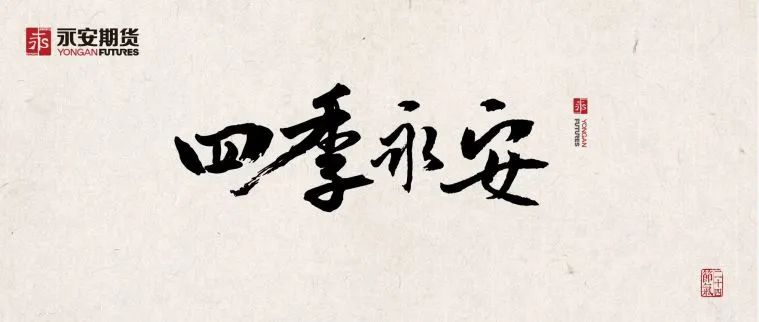 永安期货
YONGAN FUTURES
四季永安
YONGAN
FUTURES
二十四
节气